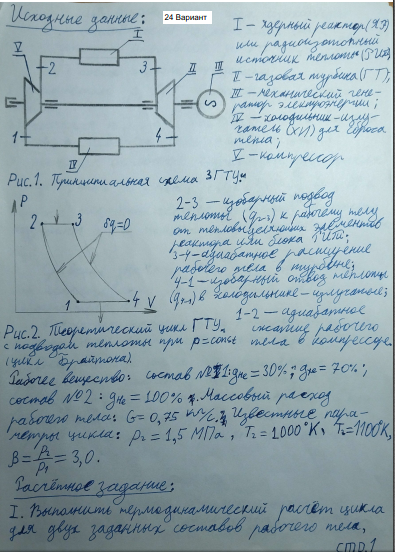 Исходные данные:
24 Вариант
I - ядерный реактор (ЯР)
или радиоизотопный
источник теплоты (РИТ)
II - газовая турбина (ГТ);
III - механический гене-
ратор электроэнергии;
IV - холодильник-излу-
чатель (ХИ) для сброса
тепла;
V - компрессор
V
I
2
3
II
III
S
1
4
IV
Рис.1. Принципиальная схема ЗГТУ.
P
2
3
δq=0
1
4
V
2-3 - изобарный подвод
теплоты (q2-3) к рабочему телу
от тепловыделяющих элементов
реактора или блока РИТ;
3-4 - адиабатное расширение
рабочего тела в турбине;
4-1 - изобарный отвод теплоты
(q4-1) в холодильнике-излучателе;
1-2 - адиабатное
сжатие рабочего
тела в компрессоре.
Рис.2. Теоретический цикл ГТУ
с подводом теплоты при p=const
(цикл Брайтона).
Рабочее вещество: состав №1: gHe = 30%; = 70%;
состав №2: gHe = 100%. Массовый расход
рабочего тела: G = 0,75 кг/с. Известные пара-
метры цикла: P2 = 1,5 МПа, = 1000°K, = 1100°K,
β = P2/P1 = 3,0.
Расчётное задание:
I. Выполнить термодинамический расчёт цикла
для двух заданных составов рабочего тела,
стр.1